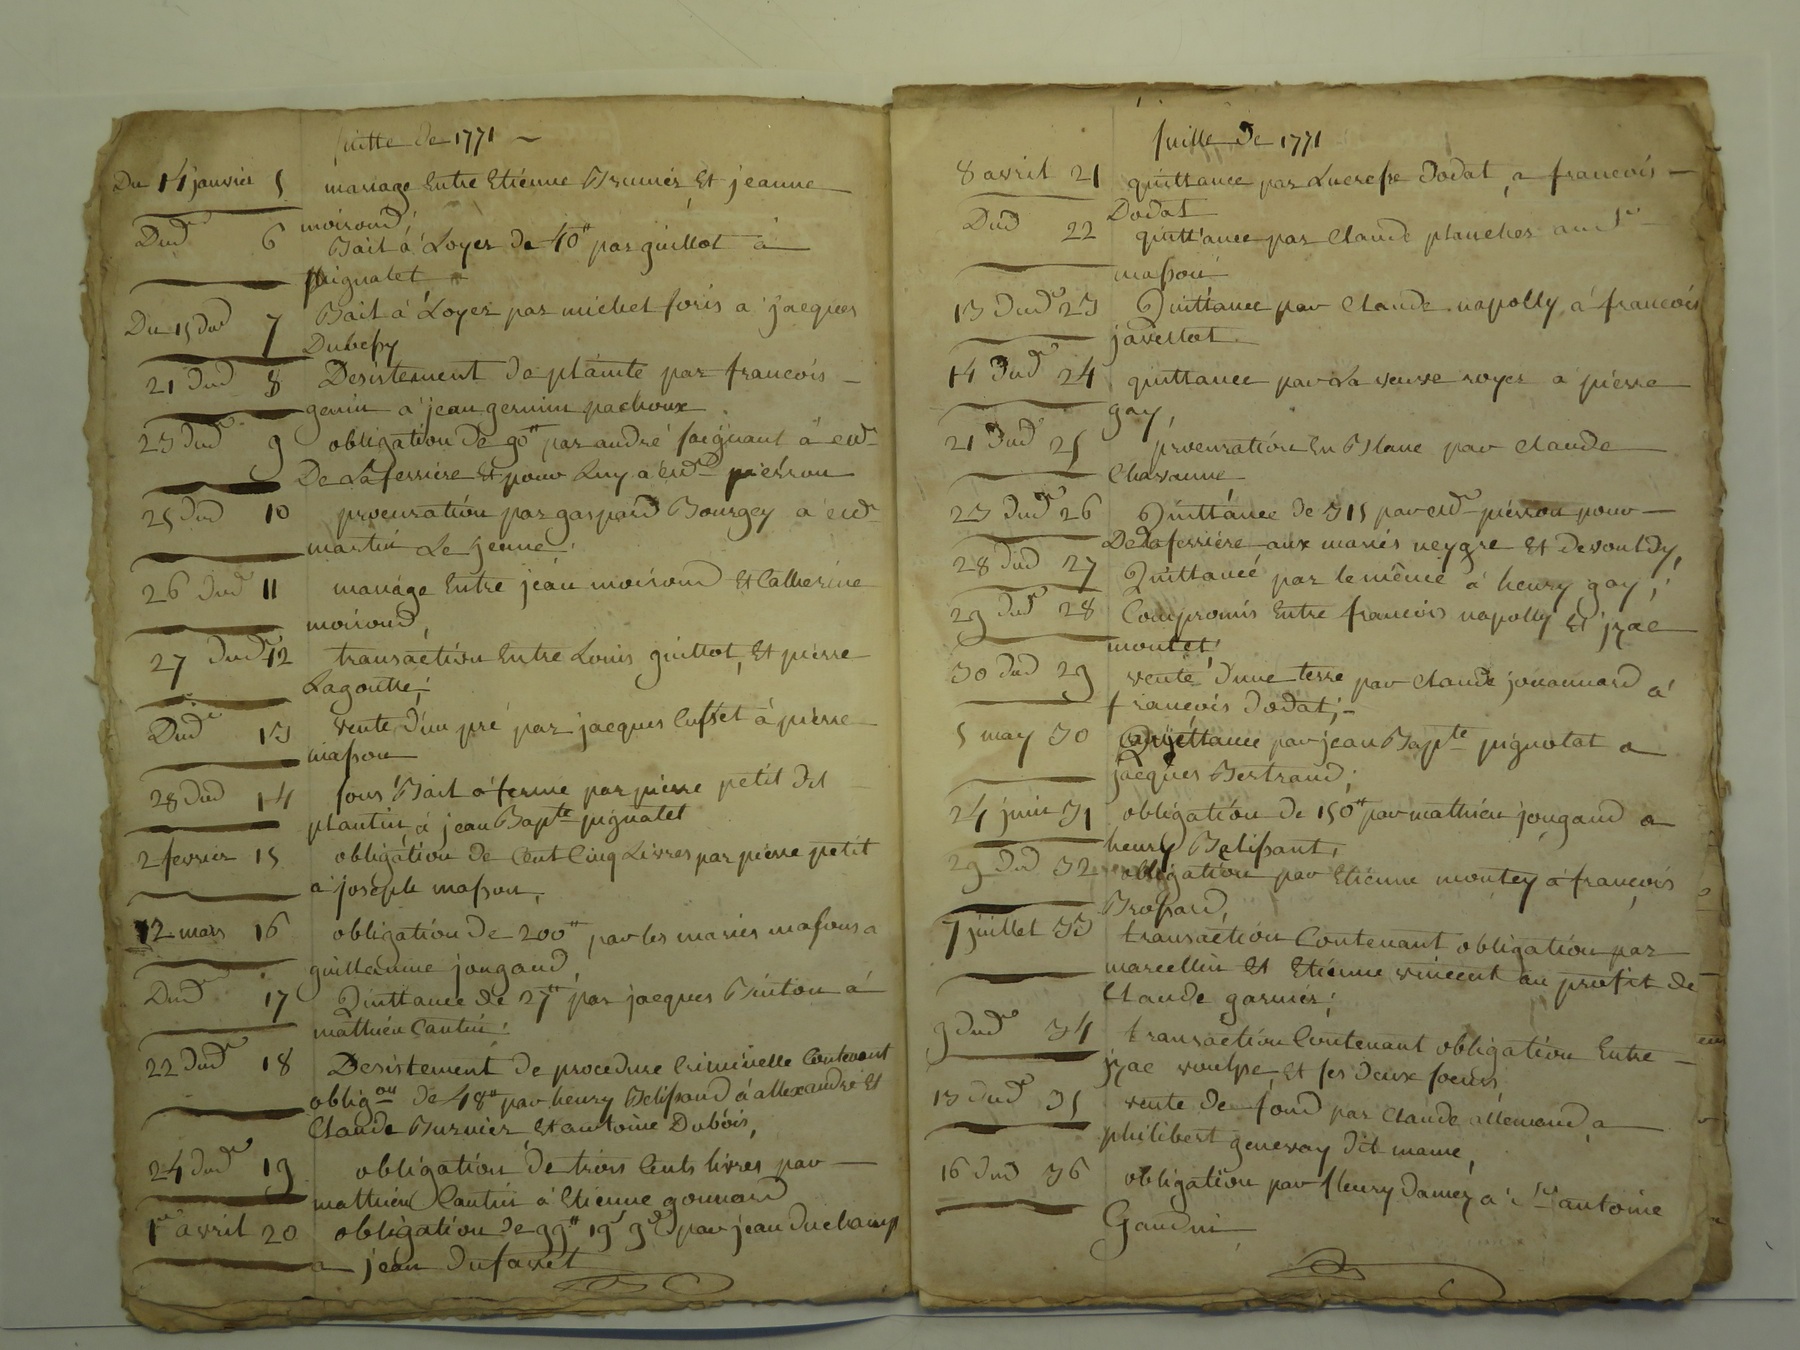 suitte de 1771
Du 14 janvier 5 mariage Entre Etienne Brunier Et jeanne
moiroud,
Dud 6 Bail à Loyer de 40# par guillot à
pignatet
Du 15 dud 7 Bail à Loyer par michel foris a jacques
Dubessy
21 dud 8 Desistement de plainte par francois
genin à jean germin pachoux
23 dud 9 obligation de 90# par andré soignant à
De Laferriere Et pour Luy à pierron
25 dud 10 procuration par gaspard Bourgey a
martin Le jeune.
26 dud 11 mariage Entre jean moiroud Et Catherine
moiroud,
27 dud 12 transaction Entre Louis guillot, Et pierre
Lagoutte;
Dud 13 vente d'un pré par jacques Cusset à pierre
masson
28 dud 14 sous Bail à ferme par pierre petit dit
plantin à jean Bapte pignatet
2 fevrier 15 obligation de Cent Cinq Livres par pierre petit
a joseph masson,
12 mars 16 obligation de 200# par les mariés massons a
guillaume jougand,
Dud 17 Quittance de 27# par jacques Briton à
mathieu Cantin.
22 dud 18 Desistement de procedure Criminelle Contenant
obligon de 48# par henry Belissand à allexandre Et
Claude Burnier Et antoine Dubois,
24 dud 19 obligation de trois Cents livres par
mathieu Cantin à Etienne gonnard
1er avril 20 obligation de 99# 19s 9d par jean duchamp
a jean dufavet
suitte De 1771
8 avril 21 quittance par Lucresse Dodat, a francois
Dodat
Dud 22 quittance par Claude planches au Sr
masson
13 dud 23 Quittance par Claude napolly, à francois
javellot
14 dud 24 quittance par La veuve royer a pierre
gay,
21 dud 25 procuration En Blanc par Claude
Chavanne
23 dud 26 Quittance de 315 par pierron pour
Delaferriere aux mariés neygre Et devouldy,
28 dud 27 Quittance par le même à henry gay;
29 dud 28 Compromis Entre francois napolly Et jzac
montet,
30 dud 29 vente d'une terre par Claude jouannard à
francois dodat;
5 may 30 Quittance par jean Bapte pignatat a
jacques Bertrand;
24 juin 31 obligation de 150# par mathieu jougand a
henry Belissant,
29 dud 32 obligation par Etienne montey à francois
Brossard,
7 juillet 33 transaction Contenant obligation par
marcellin Et Etienne vincent au profit de
Claude garnier;
9 dud 34 transaction Contenant obligation Entre
jzac voulpe, Et ses deux soeurs,
13 dud 35 vente de fond par Claude allemand, a
philibert genevay dit mame,
16 dud 36 obligation par fleury damez a Sr antoine
Gaudin